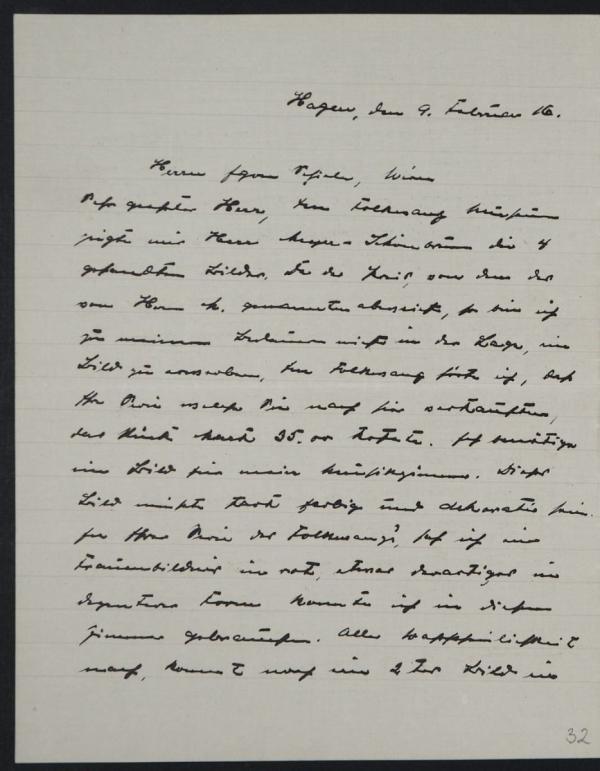 Hagen, den 9. Februar 16.
Herrn Egon Schiele, Wien
Sehr geehrter Herr, Im Folkwang Museum
zeigte mir Herr Meyer-Schönbrunn die 4
gesandten Bilder. Da der Preis, von dem der
von Herrn M. genannten abweicht, so bin ich
zu meinem Bedauern nicht in der Lage, ein
Bild zu erwerben. Im Folkwang hörte ich, daß
Ihre Preise welche Sie nach hier verkauften,
das Stück Mark 35.00 kostete. Ich benötige
ein Bild für mein Musikzimmer. Dieses
Bild müßte stark farbig und dekorativ sein.
Ihre der Folkwang's, sah ich ein
Frauenbildnis in rot, etwas derartiges in
dezenterer Form könnte ich in diesem
Zimmer gebrauchen. Aller Wahrscheinlichkeit
nach, kommt noch ein 2tes Bild in